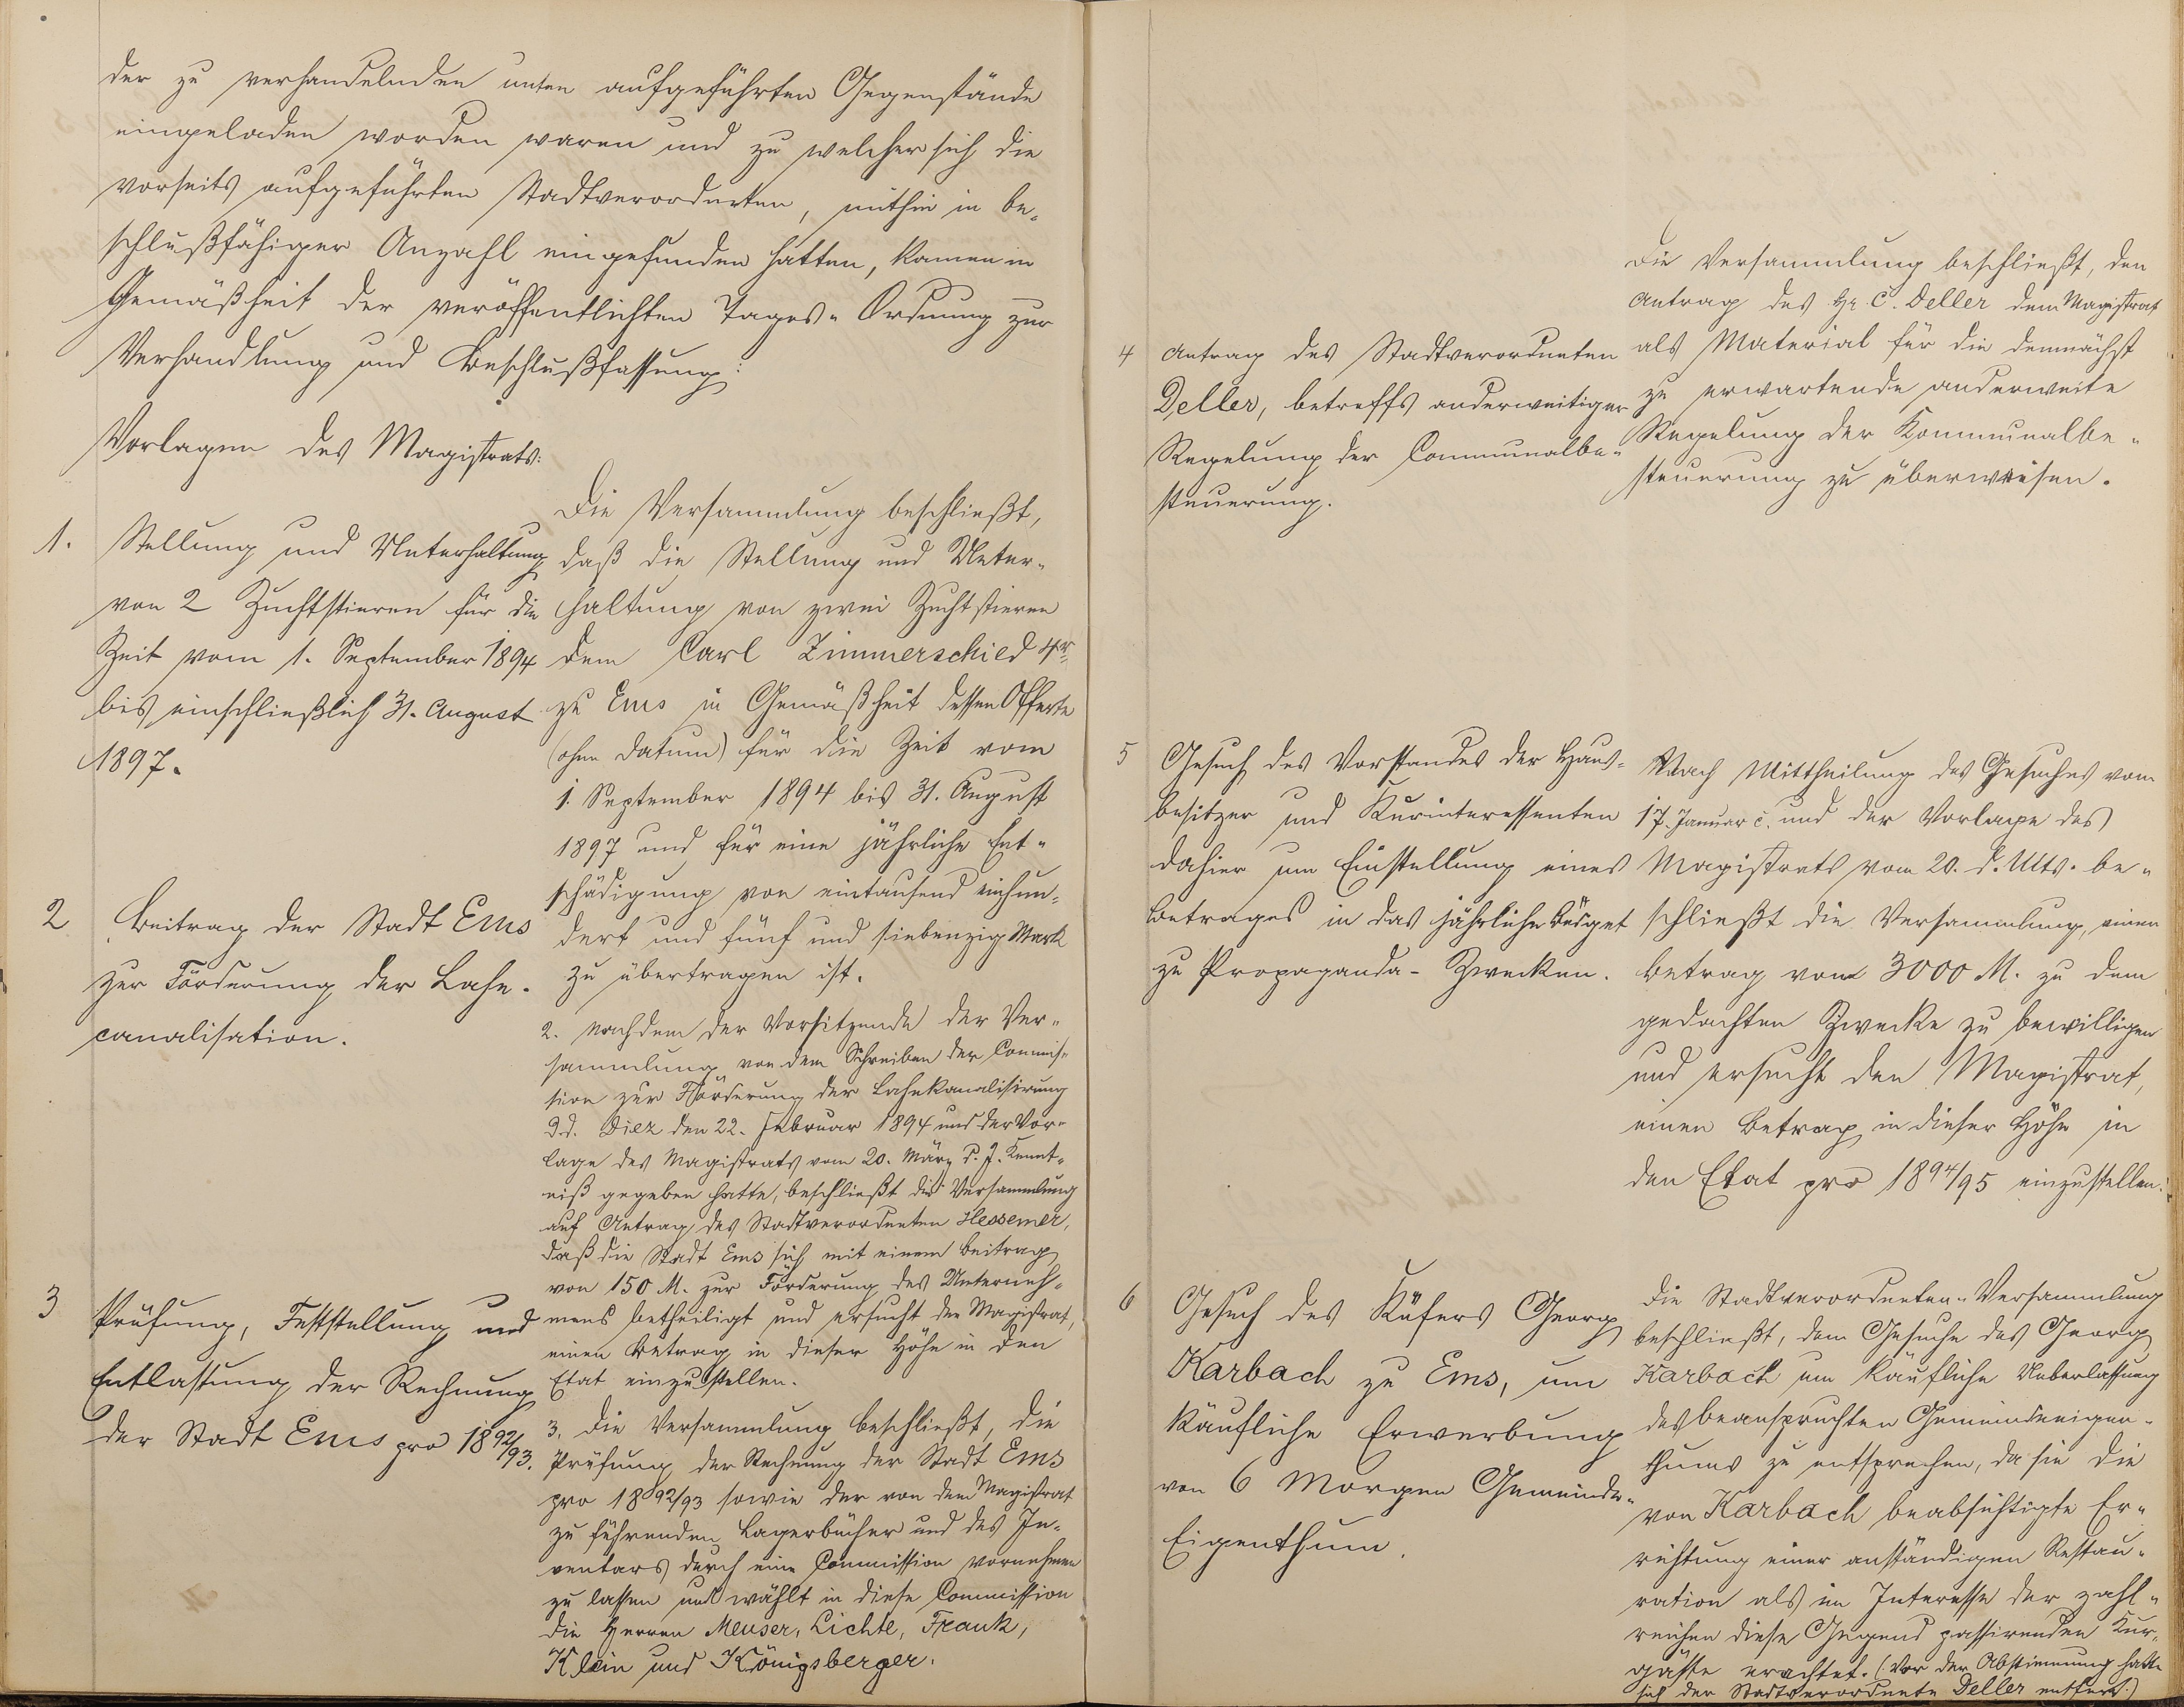 der zu verhandelnden unten aufgeführten Gegenstände
eingeladen worden waren und zu welcher sich die
vorseits aufgeführten Stadtverordneten, mithin in be-
schlußfähiger Anzahl eingefunden hatten, kamen in
Gemäßheit der veröffentlichten Tages-Ordnung zur
Verhandlung und Beschlußfassung:
Vorlagen des Magistrats:
1. Stellung und Unterhaltung
von 2 Zuchtstieren für die
Zeit vom 1. September 1894
bis einschließlich 31. August
1897.
Die Versammlung beschließt,
daß die Stellung und Unter-
haltung von zwei Zuchtstieren
dem Carl Zimmerschied 4r
zu Ems in Gemäßheit dessen Offerte
(ohne Datum) für die Zeit vom
1. September 1894 bis 31. August
1897 und für eine jährliche Ent-
schädigung von eintausend einhun-
dert und fünf und siebenzig Mark
zu übertragen ist.
2 Beitrag der Stadt Ems
zur Förderung der Lahn-
canalisation.
2. Nachdem der Vorsitzende der Ver-
sammlung von dem Schreiben der Commis-
sion zur Förderung der Lahnkanalisirung
d.d. Diez den 22. Februar 1894 und der Vor-
lage des Magistrats vom 20. März d. J. Kennt-
niß gegeben hatte, beschließt die Versammlung
auf Antrag des Stadtverordneten Hessemer,
daß die Stadt Ems sich mit einem Beitrag
von 150 M. zur Förderung des Unterneh-
mens betheiligt und ersucht den Magistrat,
einen Betrag in dieser Höhe in den
Etat einzustellen.
3 Prüfung, Feststellung und
Entlastung der Rechnung
der Stadt Ems pro 1892/93.
3. Die Versammlung beschließt, die
Prüfung der Rechnung der Stadt Ems
pro 1892/93 sowie der von dem Magistrat
zu führenden Lagerbücher und des In-
ventars durch eine Commission vornehmen
zu lassen und wählt in diese Commission
die Herren Meuser, Lichte, Frank,
Klein und Königsberger.
4 Antrag des Stadtverordneten
Deller, betreffs anderweitiger
Regelung der Communalbe-
steuerung.
Die Versammlung beschließt, den
Antrag des Hr. C. Deller dem Magistrat
als Material für die demnächst
zu erwartende anderweite
Regelung der Kommunalbe-
steuerung zu überweisen.
5 Gesuch des Vorstandes der Haus-
besitzer und Kurinteressenten
dahier um Einstellung eines
Betrages in das jährliche Budget
zu Propaganda-Zwecken.
Nach Mittheilung des Gesuches vom
17. Januar c. und der Vorlage des
Magistrats vom 20. d. Mts. be-
schließt die Versammlung, einen
Betrag von 3000 M. zu dem
gedachten Zwecke zu bewilligen
und ersucht den Magistrat,
einen Betrag in dieser Höhe in
den Etat pro 1894/95 einzustellen.
6 Gesuch des Küfers Georg
Karbach zu Ems, um
käufliche Erwerbung
von 6 Morgen Gemeinde-
Eigenthum.
Die Stadtverordneten-Versammlung
beschließt, dem Gesuche des Georg
Karbach um käufliche Ueberlassung
des beanspruchten Gemeindeeigen-
thums zu entsprechen, da sie die
von Karbach beabsichtigte Er-
richtung einer anständigen Restau-
ration als im Interesse der zahl-
reichen diese Gegend passirenden Kur-
gäste erachtet. (Vor der Abstimmung hatte
sich der Stadtverordnete Deller entfernt.)